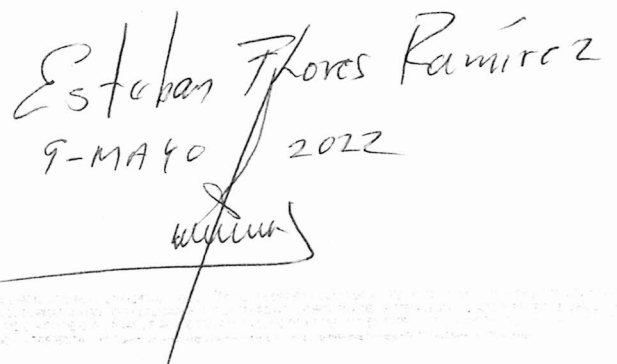 Esteban Flores Ramírez
9-MAYO 2022